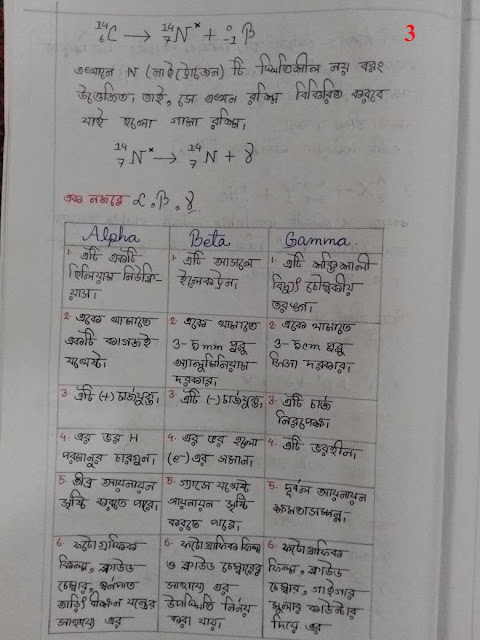 3
¹⁴₆C → ¹⁴₇N* + ⁰₋₁β
এখানে N (নাইট্রোজেন) টি স্থিতিশীল নয় বরং
উত্তেজিত। তাই, সে এখন রশ্মি বিকিরিত করবে
যাই হলো গামা রশ্মি।
¹⁴₇N* → ¹⁴₇N + γ
এক নজরে α, β, γ
Alpha Beta Gamma
1. এটি একটি
হিলিয়াম নিউক্লি-
য়াস।
1. এটি আসলে
ইলেকট্রন।
1. এটি শক্তিশালী
বিদ্যুৎ চৌম্বকীয়
তরঙ্গ।
2. একে থামাতে
একটি কাগজই
যথেষ্ট।
2. একে থামাতে
3-5mm পুরু
অ্যালুমিনিয়াম
দরকার।
2. একে থামাতে
3-5cm পুরু
সিসা দরকার।
3. এটি (+) চার্জযুক্ত।
3. এটি (-) চার্জযুক্ত।
3. এটি চার্জ
নিরপেক্ষ।
4. এর ভর H
পরমানুর চারগুন।
4. এর ভর হলো
(e-) এর সমান।
4. এটি ভরহীন।
5. তীব্র আয়নায়ন
সৃষ্টি করতে পারে।
5. গ্যাসে যথেষ্ট
আয়নায়ন সৃষ্টি
করতে পারে।
5. দুর্বল আয়নায়ন
ক্ষমতাসম্পন্ন।
6. ফটোগ্রাফিক
ফিল্ম, ক্লাউড
চেম্বার, স্বর্নপাত
তাড়িৎ বীক্ষন যন্ত্রের
সাহায্যে এর
6. ফটোগ্রাফিক ফিল্ম
ও ক্লাউড চেম্বারের
সাহায্যে এর
উপস্থিতি নির্নয়
করা যায়।
6. ফটোগ্রাফিক
ফিল্ম, ক্লাউড
চেম্বার, গাইগার
মুলার কাউন্টার
দিয়ে এর